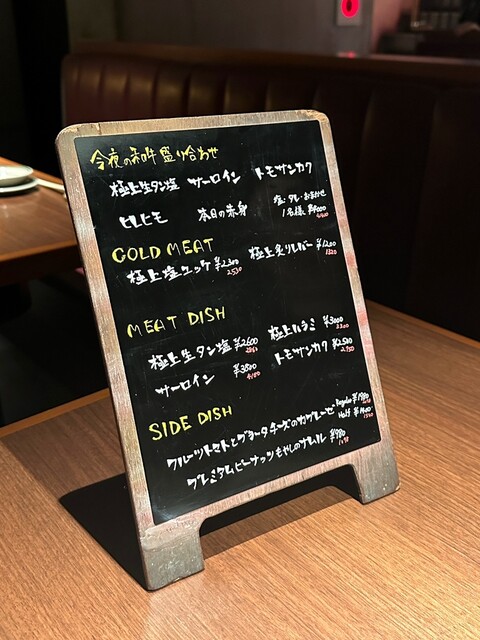 今夜の和牛盛り合わせ
極上生タン塩 サーロイン トモサンカク
ヒレヒモ 本日の赤身 塩・タレ・おまかせ
1名様 ¥4000
4400
COLD MEAT
極上塩ユッケ ¥2300 極上炙りレバー ¥1200
2530 1320
MEAT DISH
極上生タン塩 ¥2600 極上ハラミ ¥3000
2860 3300
サーロイン ¥3800 トモサンカク ¥2500
4180 2750
SIDE DISH
フルーツトマトとブラータチーズのカプレーゼ Regular ¥1980
Half
プレミアムピーナッツもやしのナムル ¥980